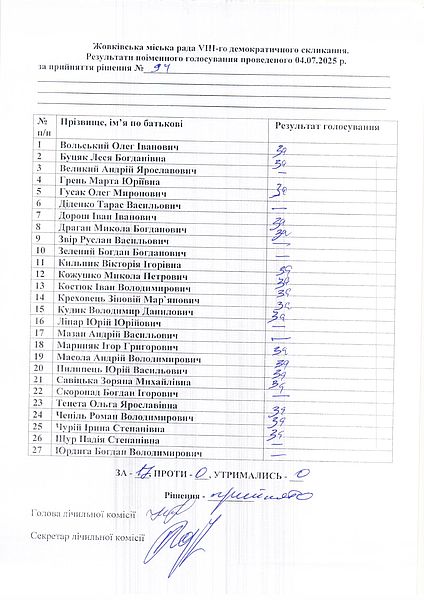 Жовківська міська рада VIII-го демократичного скликання.
Результати поіменного голосування проведеного 04.07.2025 р.
за прийняття рішення № 94
№ п/п Прізвище, ім’я по батькові Результат голосування
1 Вольський Олег Іванович за
2 Буцяк Леся Богданівна за
3 Великий Андрій Ярославович —
4 Грень Марта Юріївна
5 Гусак Олег Миронович за
6 Діденко Тарас Васильович —
7 Дорош Іван Іванович
8 Драган Микола Богданович за
9 Звір Руслан Васильович за
10 Зелений Богдан Богданович —
11 Кильник Вікторія Ігорівна —
12 Кожушко Микола Петрович за
13 Костюк Іван Володимирович за
14 Креховець Зіновій Мар`янович за
15 Кулик Володимир Данилович за
16 Ліпар Юрій Юрійович за
17 Мазан Андрій Васильович —
18 Мариняк Ігор Григорович —
19 Масола Андрій Володимирович за
20 Пилипець Юрій Васильович за
21 Савіцька Зоряна Михайлівна за
22 Скоропад Богдан Ігорович —
23 Тенета Ольга Ярославівна
24 Чепіль Роман Володимирович за
25 Чурій Ірина Степанівна за
26 Щур Надія Степанівна за
27 Юрдига Богдан Володимирович —
ЗА - 17 ПРОТИ - 0, УТРИМАЛИСЬ - 0
Рішення - прийнято
Голова лічильної комісії
Секретар лічильної комісії